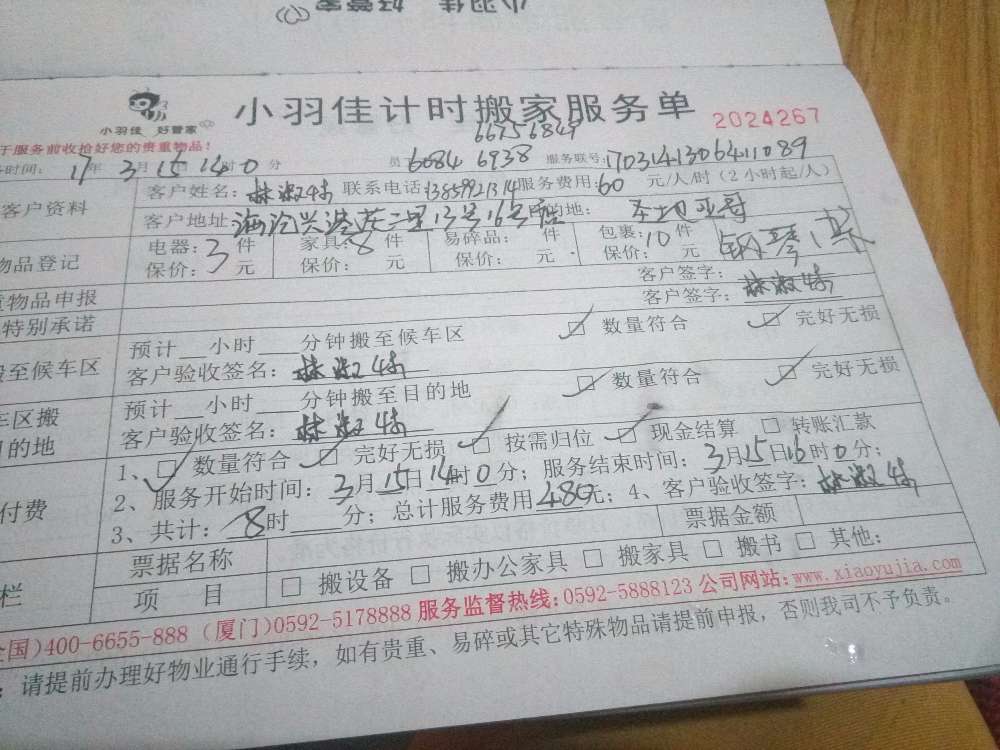 小羽佳 好管家
小羽佳 好管家
小羽佳计时搬家服务单
2024267
于服务前收拾好您的贵重物品!
66756849
务时间: 17年 3月 15日 14时 0分 员 6084 6938 服务联号: 170314130641089
客户资料
客户姓名: 林淑娇 联系电话: 13859921314 服务费用: 60 元/人/时 (2小时起/人)
客户地址: 海沧兴港花二里13号16号 的地: 圣地亚哥
物品登记
电器: 3 件 家具: 8 件 易碎品: 件 包裹: 10 件 钢琴1架
保价: 元 保价: 元 保价: 元 保价: 元
物品申报 客户签字:
特别承诺 客户签字: 林淑娇
搬至候车区 预计 小时 分钟搬至候车区 数量符合 完好无损
客户验收签名: 林淑娇
车区搬 预计 小时 分钟搬至目的地 数量符合 完好无损
目的地 客户验收签名: 林淑娇
付费
1、 数量符合 完好无损 按需归位 现金结算 转账汇款
2、服务开始时间: 3月15日14时0分; 服务结束时间: 3月15日16时0分;
3、共计: 8时 分; 总计服务费用480元; 4、客户验收签字: 林淑娇
栏 票据名称 票据金额
项 目 搬设备 搬办公家具 搬家具 搬书 其他:
全国)400-6655-888 (厦门)0592-5178888 服务监督热线:0592-5888123 公司网站:www.xiaoyujia.com
: 请提前办理好物业通行手续, 如有贵重、易碎或其它特殊物品请提前申报, 否则我司不予负责。